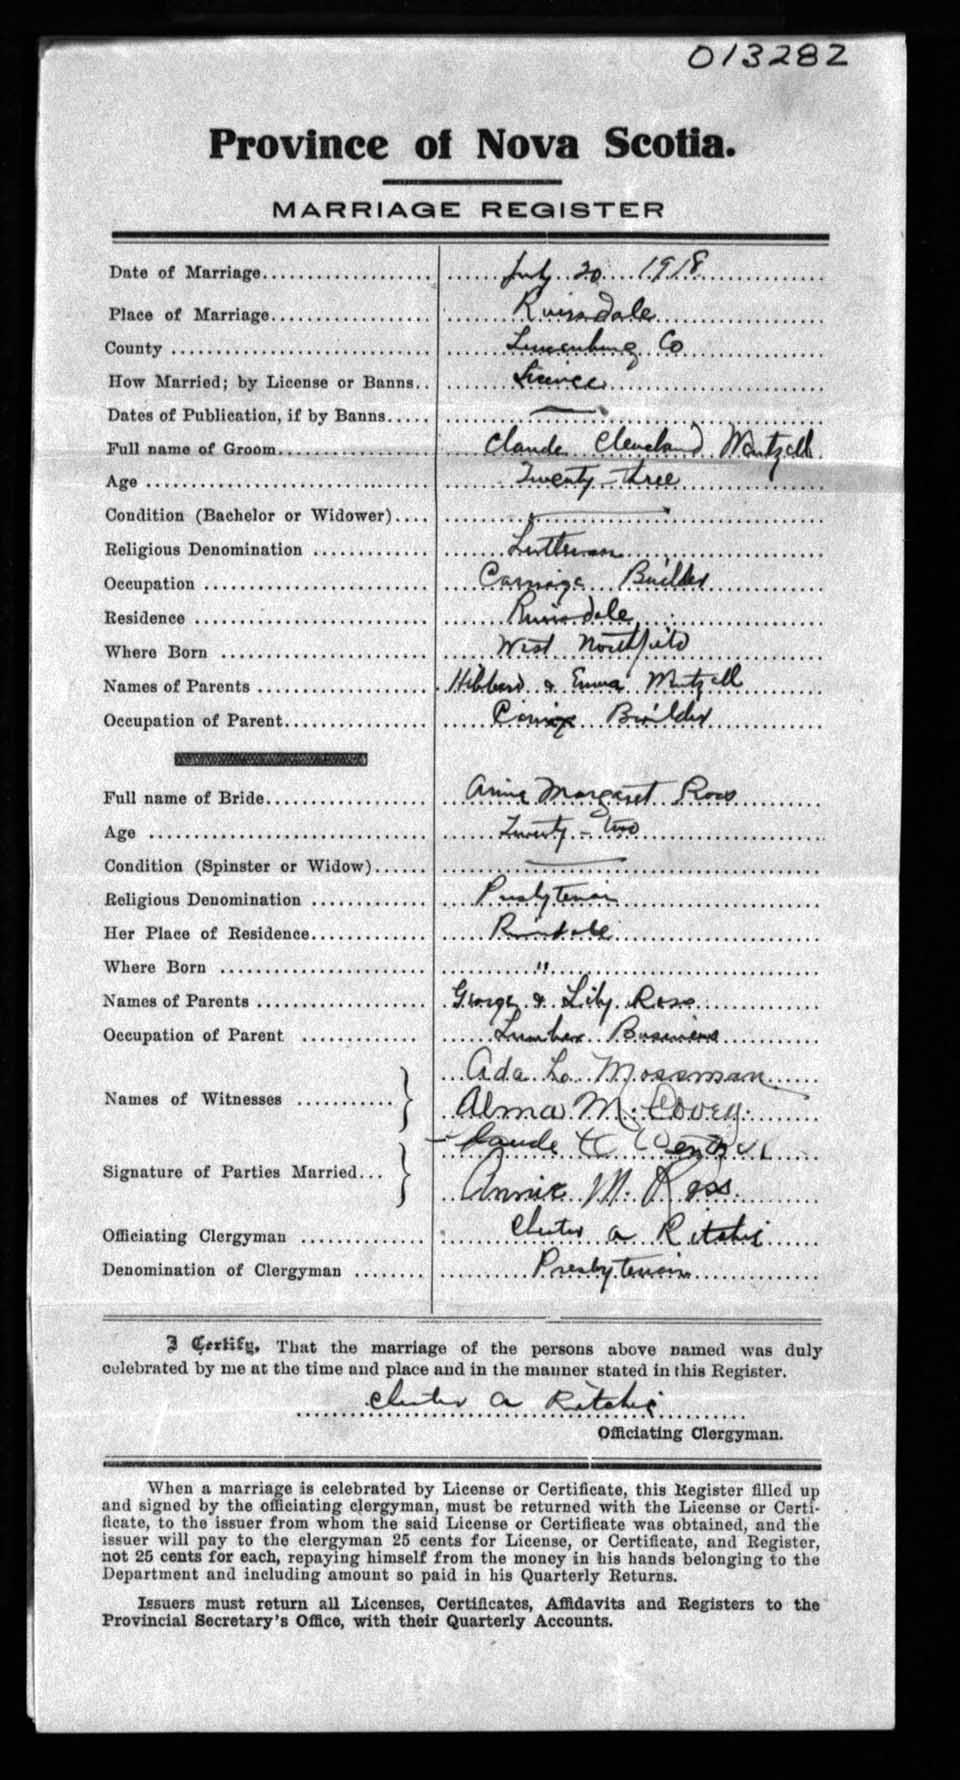 013282
Province of Nova Scotia.
MARRIAGE REGISTER
Date of Marriage.................... July 20 1918
Place of Marriage.................. Riversdale
County ............................ Lunenburg Co
How Married; by License or Banns.. Licence
Dates of Publication, if by Banns.....
Full name of Groom................. Claude Cleveland Wentzell
Age ............................... Twenty-three
Condition (Bachelor or Widower)....
Religious Denomination ............ Lutheran
Occupation ........................ Carriage Builder
Residence ......................... Riversdale
Where Born ........................ West Northfield
Names of Parents .................. Hibberd & Emma Wentzell
Occupation of Parent............... Builder
Full name of Bride................. Annie Margaret Ross
Age ............................... Twenty-two
Condition (Spinster or Widow)......
Religious Denomination ............ Presbyterian
Her Place of Residence............. Riversdale
Where Born ........................ "
Names of Parents .................. George & Lily Ross
Occupation of Parent .............. Lumber Business
Names of Witnesses ........... Ada L. Mossman
Alma M. Covey.
Signature of Parties Married... Claude C Wentzell
Annie M. Ross.
Officiating Clergyman ............. Chester A Ritchie
Denomination of Clergyman ........ Presbyterian
I Certify, That the marriage of the persons above named was duly
celebrated by me at the time and place and in the manner stated in this Register.
Chester A Ritchie
Officiating Clergyman.
When a marriage is celebrated by License or Certificate, this Register filled up
and signed by the officiating clergyman, must be returned with the License or Certi-
ficate, to the issuer from whom the said License or Certificate was obtained, and the
issuer will pay to the clergyman 25 cents for License, or Certificate, and Register,
not 25 cents for each, repaying himself from the money in his hands belonging to the
Department and including amount so paid in his Quarterly Returns.
Issuers must return all Licenses, Certificates, Affidavits and Registers to the
Provincial Secretary's Office, with their Quarterly Accounts.